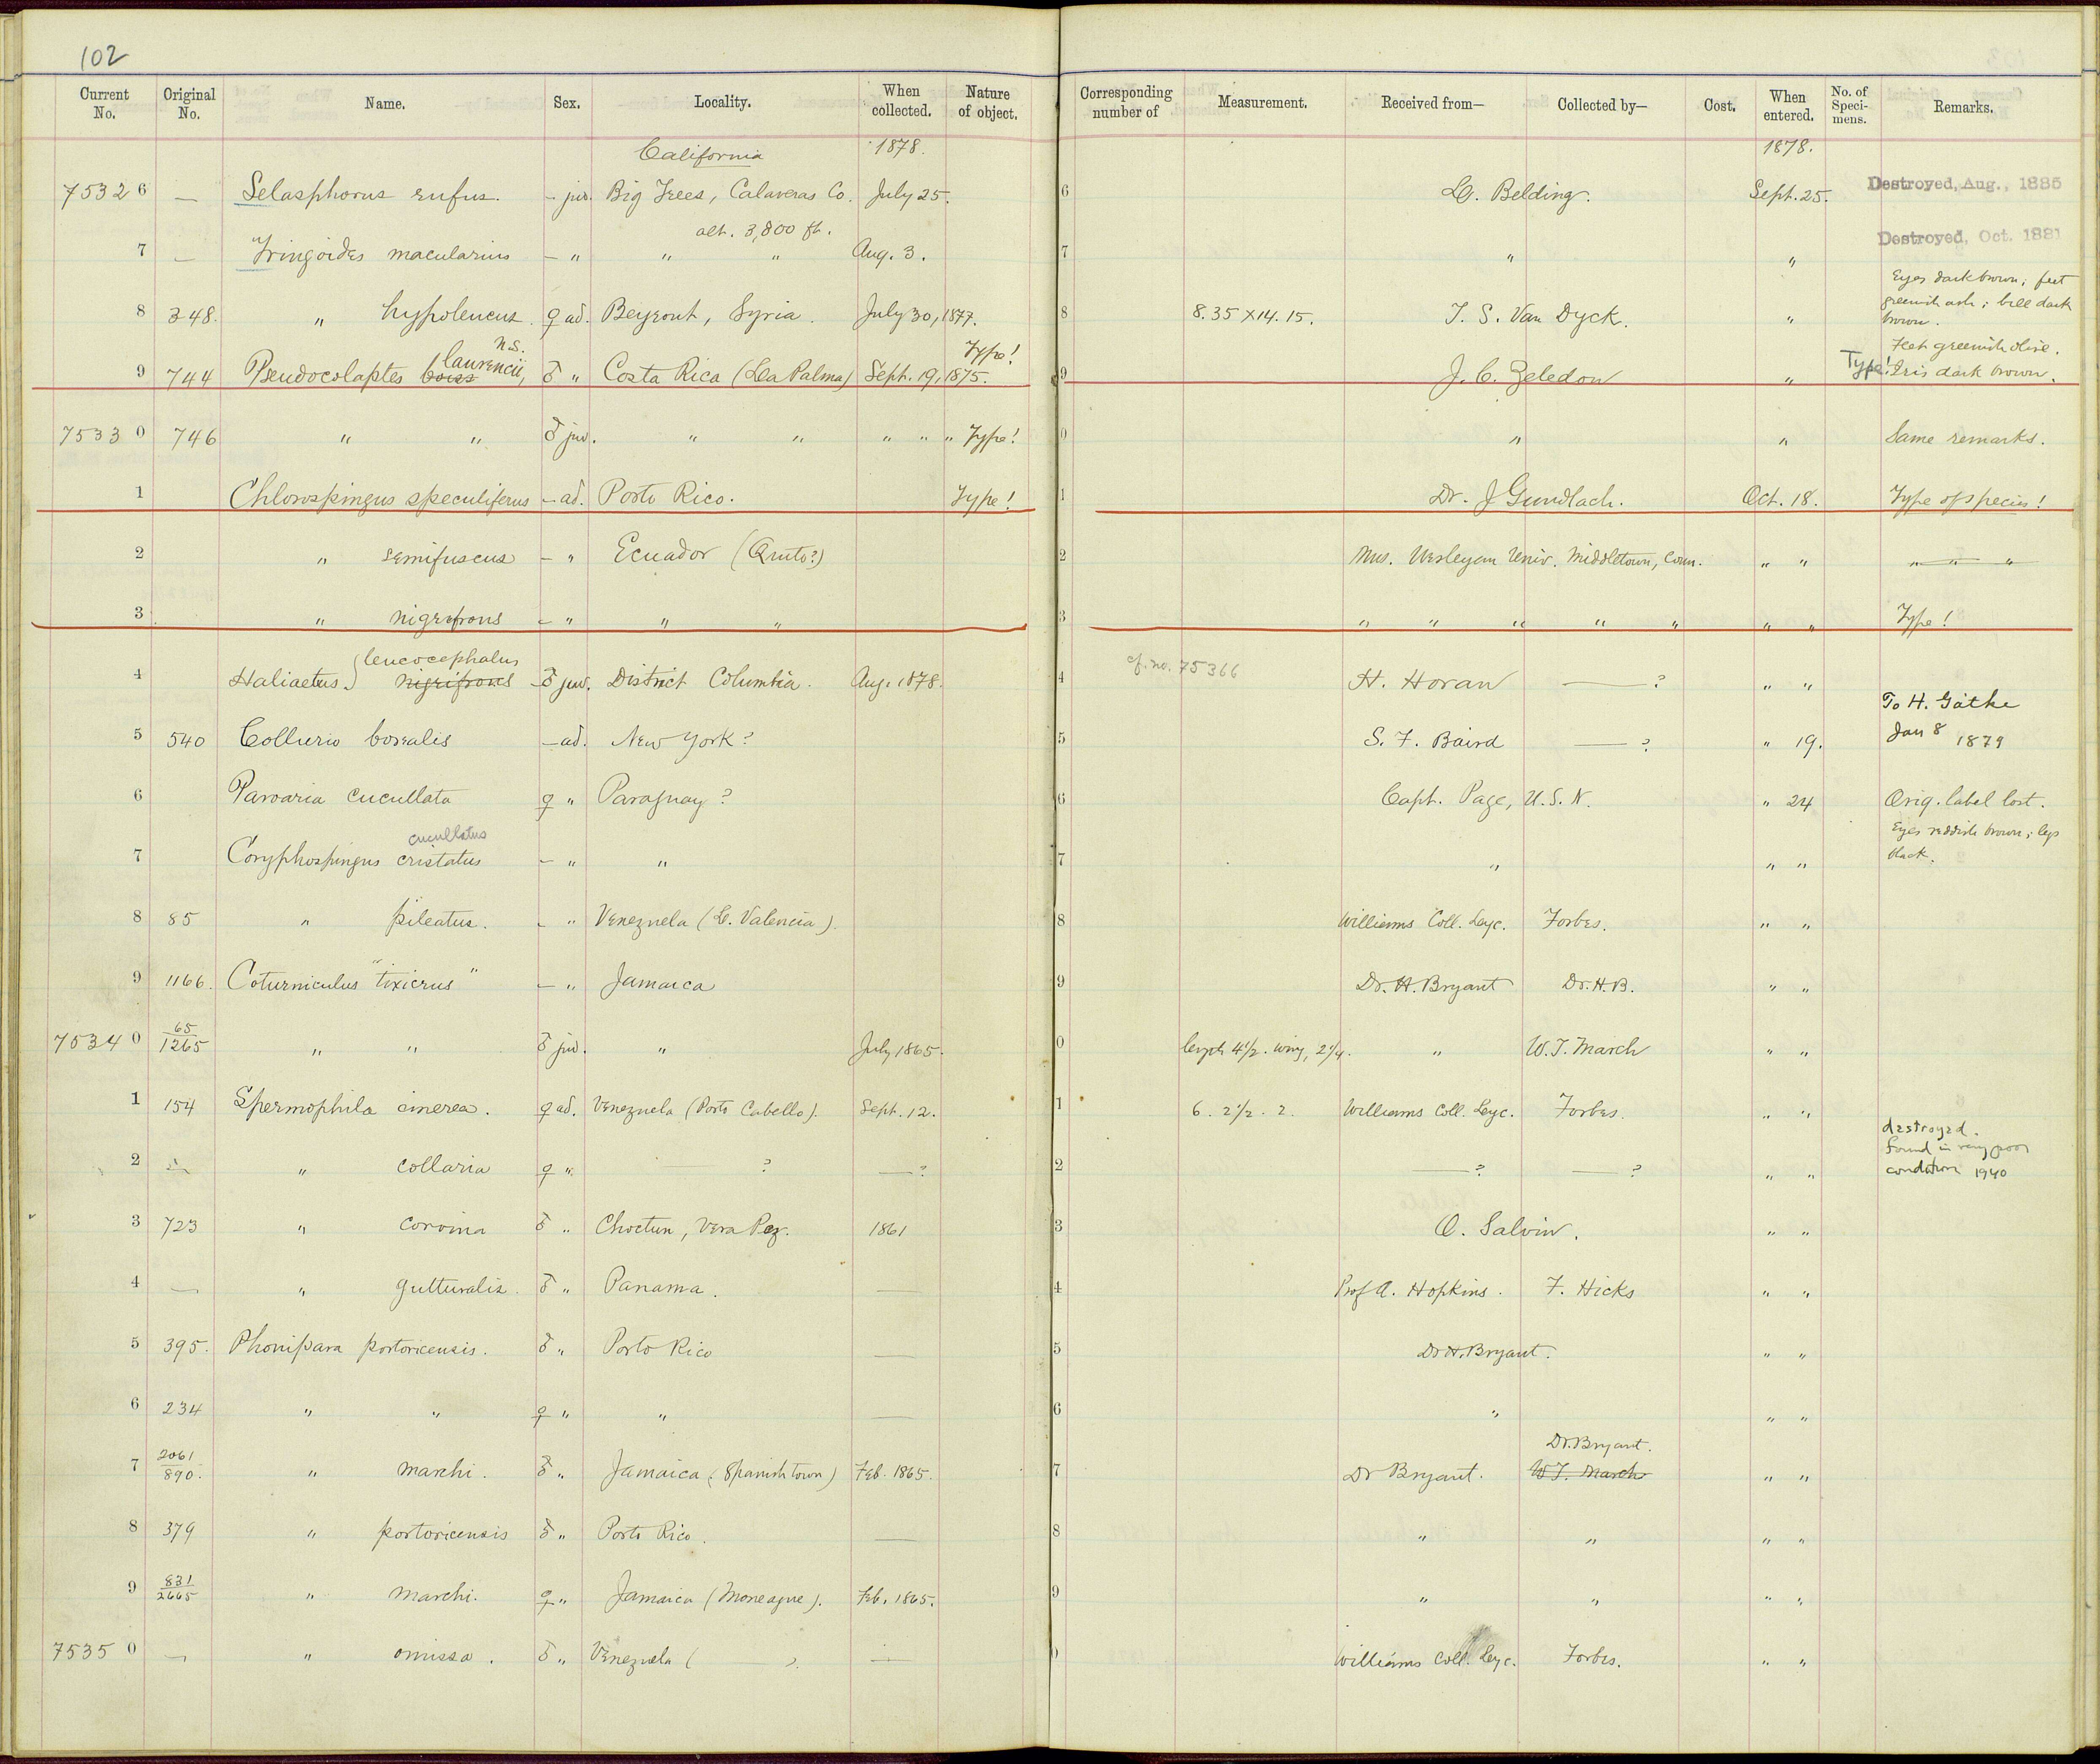 102
Current No. Original No. Name. Sex. Locality. When collected. Nature of object. Corresponding number of Measurement. Received from— Collected by— Cost. When entered. No. of Specimens. Remarks.
California 1878. 1878.
75326 — Selasphorus rufus. – juv. Big Trees, Calaveras Co. July 25. 6 L. Belding. Sept. 25. Destroyed, Aug., 1885
alt. 3,800 ft. Destroyed, Oct. 1881
7 — Tringoides macularius – " " " Aug. 3. 7 " "
Eyes dark brown; feet
greenish ash; bill dark
brown.
8 348. " hypoleucus. ♀ ad. Beyrout, Syria. July 30, 1877. 8 8.35 x 14.15. T. S. Van Dyck. "
n.s. Type! Feet greenish olive.
9 744 Pseudocolaptes laurencii, ♂ " Costa Rica (La Palma) Sept. 19, 1875. 9 J. C. Zeledon " Type! Iris dark brown.
75330 746 " " ♂ juv. " " " " " Type! 0 " " Same remarks.
1 Chlorospingus speculiferus – ad. Porto Rico. Type! 1 Dr. J Gundlach. Oct. 18. Type of species!
2 " semifuscus – " Ecuador (Quito?) 2 Mus. Wesleyan Univ. Middletown, Conn. " " " " "
3 " nigrifrons – " " " 3 " " " " " " " Type!
leucocephalus cf. no. 75366
4 Haliaetus nigrifrons ♂ juv. District Columbia. Aug. 1878. 4 H. Horan — ? " "
To H. Gätke
Jan 8 1879
5 540 Collurio borealis – ad. New York? 5 S. F. Baird — ? " 19.
6 Paroaria cucullata ♀ " Paraguay? 6 Capt. Page, U.S.N. " 24 Orig. label lost.
cucullatus Eyes reddish brown; legs
black.
7 Coryphospingus cristatus – " " 7 " " "
8 85 " pileatus. – " Venezuela (L. Valencia). 8 Williams Coll. Lyc. Forbes. " "
9 1166. Coturniculus "tixicrus" – " Jamaica 9 Dr. H. Bryant Dr. H. B. " "
75340 65/1265 " " ♂ juv. " July 1865. 0 length 4 1/2. wing, 2 1/4. " W. T. March " "
1 154 Spermophila cinerea. ♀ ad. Venezuela (Porto Cabello). Sept. 12. 1 6. 2 1/2. 2. Williams Coll. Lyc. Forbes. " "
destroyed.
found in very poor
condition 1940
2 — " collaria ♀ " ? — ? 2 — ? — ? " "
3 723 " corvina ♂ " Choctun, Vera Paz. 1861 3 O. Salvin. " "
4 — " gutturalis. ♂ " Panama. — 4 Prof A. Hopkins. F. Hicks " "
5 395. Phonipara portoricensis. ♂ " Porto Rico — 5 Dr H. Bryant. " "
6 234 " " ♀ " " — 6 " " "
Dr. Bryant.
7 2061/890. " marchi. ♂ " Jamaica (Spanishtown) Feb. 1865. 7 Dr Bryant. W T. March " "
8 379 " portoricensis ♂ " Porto Rico. — 8 " " " "
9 831/2665 " marchi. ♀ " Jamaica (Moneague). Feb. 1865. 9 " " " "
75350 — " omissa. ♂ " Venezuela ( ). — 0 Williams Coll. Lyc. Forbes. " "